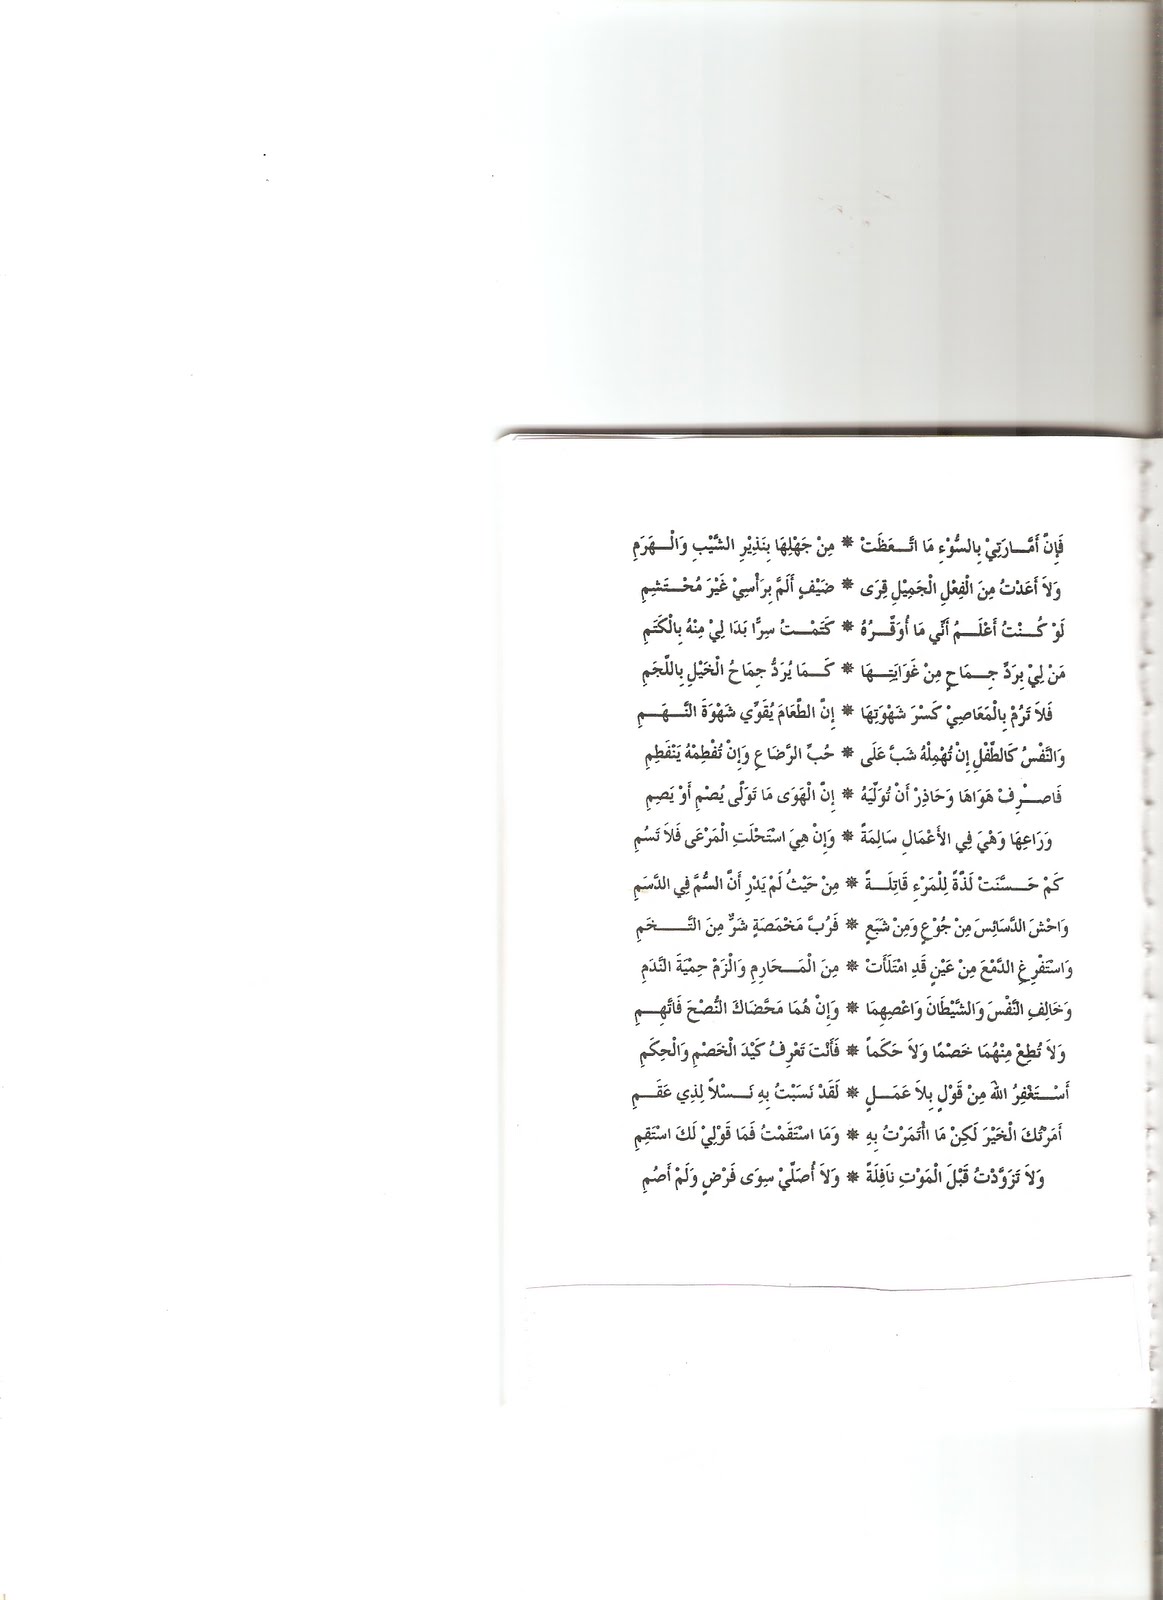 فَإِنَّ أَمَّـارَتِيْ بِالسُّوْءِ مَا اتَّـعَظَتْ ❋ مِنْ جَهْلِهَا بِنَذِيْرِ الشَّيْبِ وَالْـهَرَمِ
وَلاَ أَعَدْتُ مِنَ الْفِعْلِ الْجَمِيْلِ قِرَى ❋ ضَيْفٍ أَلَمَّ بِرَأْسِيْ غَيْرَ مُحْـتَشِمِ
لَوْ كُـنْتُ أَعْلَـمُ أَنِّي مَا أُوَقِّـرُهُ ❋ كَتَمْـتُ سِرًّا بَدَا لِيْ مِنْهُ بِالْكَتَمِ
مَنْ لِيْ بِرَدِّ جِـمَاحٍ مِنْ غَوَايَتِـهَا ❋ كَـمَا يُرَدُّ جِمَاحُ الْخَيْلِ بِاللُّجَمِ
فَلاَ تَرُمْ بِالْمَعَاصِيْ كَسْرَ شَهْوَتِهَا ❋ إِنَّ الطَّعَامَ يُقَوِّي شَهْوَةَ النَّـهِـمِ
وَالنَّفْسُ كَالطِّفْلِ إِنْ تُهْمِلْهُ شَبَّ عَلَى ❋ حُبِّ الرَّضَاعِ وَإِنْ تُفْطِمْهُ يَنْفَطِمِ
فَاصْـرِفْ هَوَاهَا وَحَاذِرْ أَنْ تُوَلِّيَهُ ❋ إِنَّ الْهَوَى مَا تَوَلَّى يُصْمِ أَوْ يَصِمِ
وَرَاعِهَا وَهْيَ فِي الأَعْمَالِ سَالِمَةً ❋ وَإِنْ هِيَ اسْتَحْلَتِ الْمَرْعَى فَلاَ تَسُمِ
كَمْ حَـسَّنَتْ لَذَّةً لِلْمَرْءِ قَاتِلَـةً ❋ مِنْ حَيْثُ لَمْ يَدْرِ أَنَّ السُّمَّ فِي الدَّسَمِ
وَاخْشَ الدَّسَائِسَ مِنْ جُوْعٍ وَمِنْ شَبَعٍ ❋ فَرُبَّ مَخْمَصَةٍ شَرٌّ مِنَ التُّـخَمِ
وَاسْتَفْرِغِ الدَّمْعَ مِنْ عَيْنٍ قَدِ امْتَلَأَتْ ❋ مِنَ الْمَـحَارِمِ وَالْزَمْ حِمْيَةَ النَّدَمِ
وَخَالِفِ النَّفْسَ وَالشَّيْطَانَ وَاعْصِهِمَا ❋ وَإِنْ هُمَا مَحَّضَاكَ النُّصْحَ فَاتَّهِـمِ
وَلاَ تُطِعْ مِنْهُمَا خَصْمًا وَلاَ حَكَماً ❋ فَأَنْتَ تَعْرِفُ كَيْدَ الْخَصْمِ وَالْحِكَمِ
أَسْـتَغْفِرُ اللهَ مِنْ قَوْلٍ بِلاَ عَمَـلٍ ❋ لَقَدْ نَسَبْتُ بِهِ نَـسْلاً لِذِي عَقَـمِ
أَمَرْتُكَ الْخَيْرَ لَكِنْ مَا ائْتَمَرْتُ بِهِ ❋ وَمَا اسْتَقَمْتُ فَمَا قَوْلِيْ لَكَ اسْتَقِمِ
وَلاَ تَزَوَّدْتُ قَبْلَ الْمَوْتِ نَافِلَةً ❋ وَلاَ أُصَلِّيْ سِوَى فَرْضٍ وَلَمْ أَصُمِ